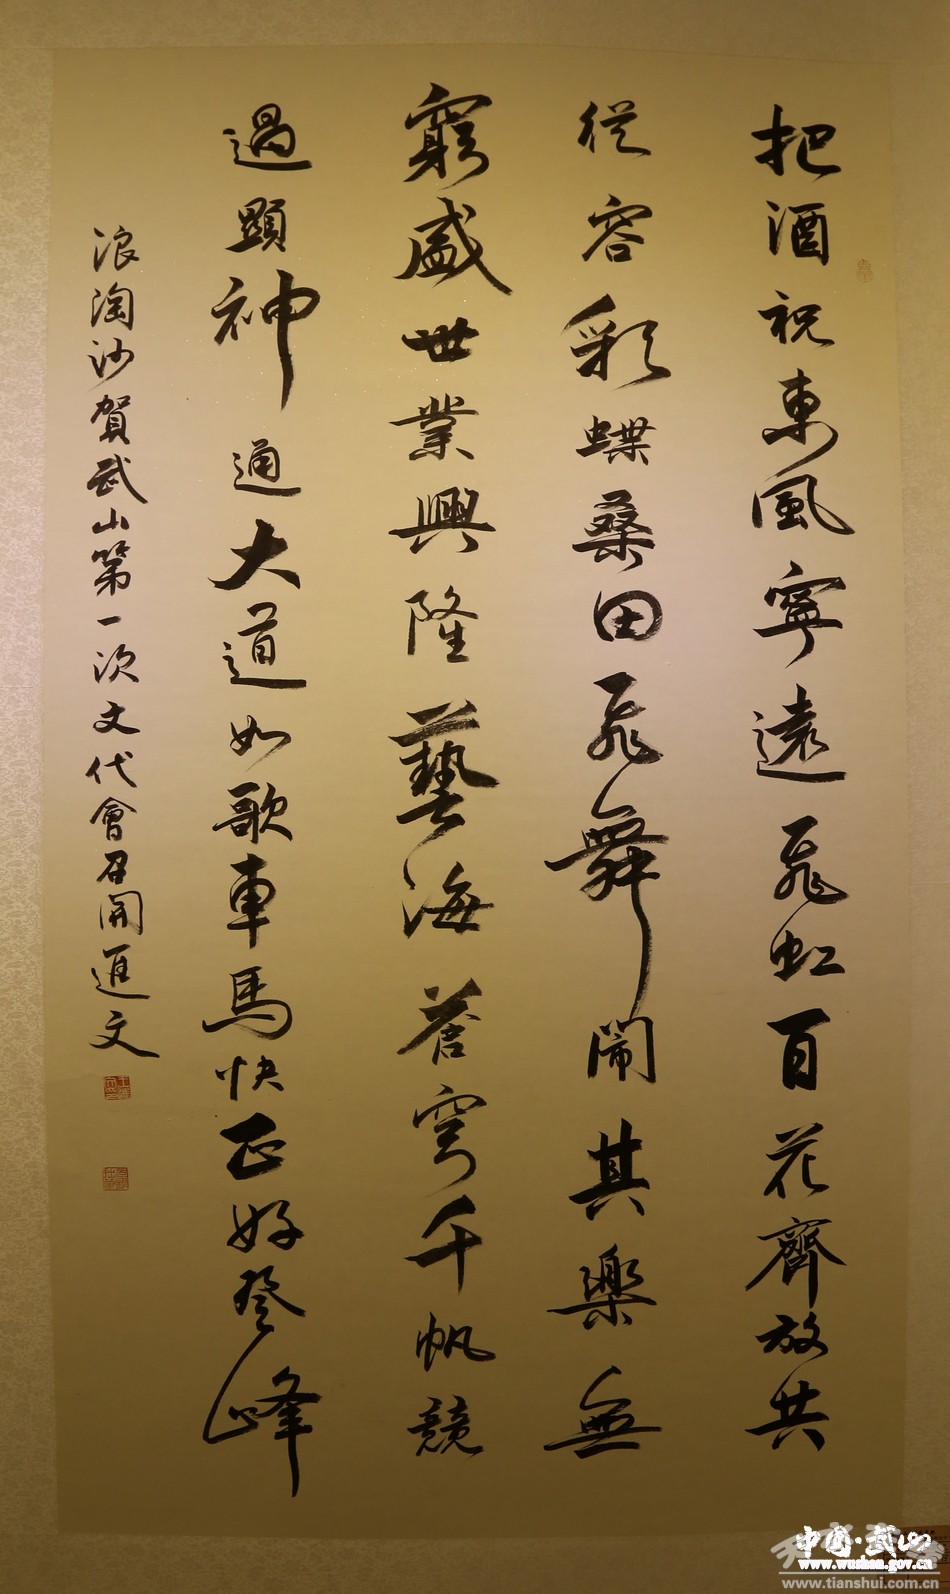 把酒祝東風寧遠飛虹百花齊放共
從容彩蝶桑田飛舞鬧其樂無
窮盛世業興隆藝海蒼穹千帆競
過顯神通大道如歌車馬快正好登峰
浪淘沙賀武山第一次文代會召開進文
中国·武山
www.wushan.gov.cn
www.tianshui.com.cn